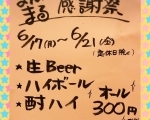 まる 感謝祭
6/17(月)〜6/21(金)
★生Beer
★ハイボール
★酎ハイ
オール
300円